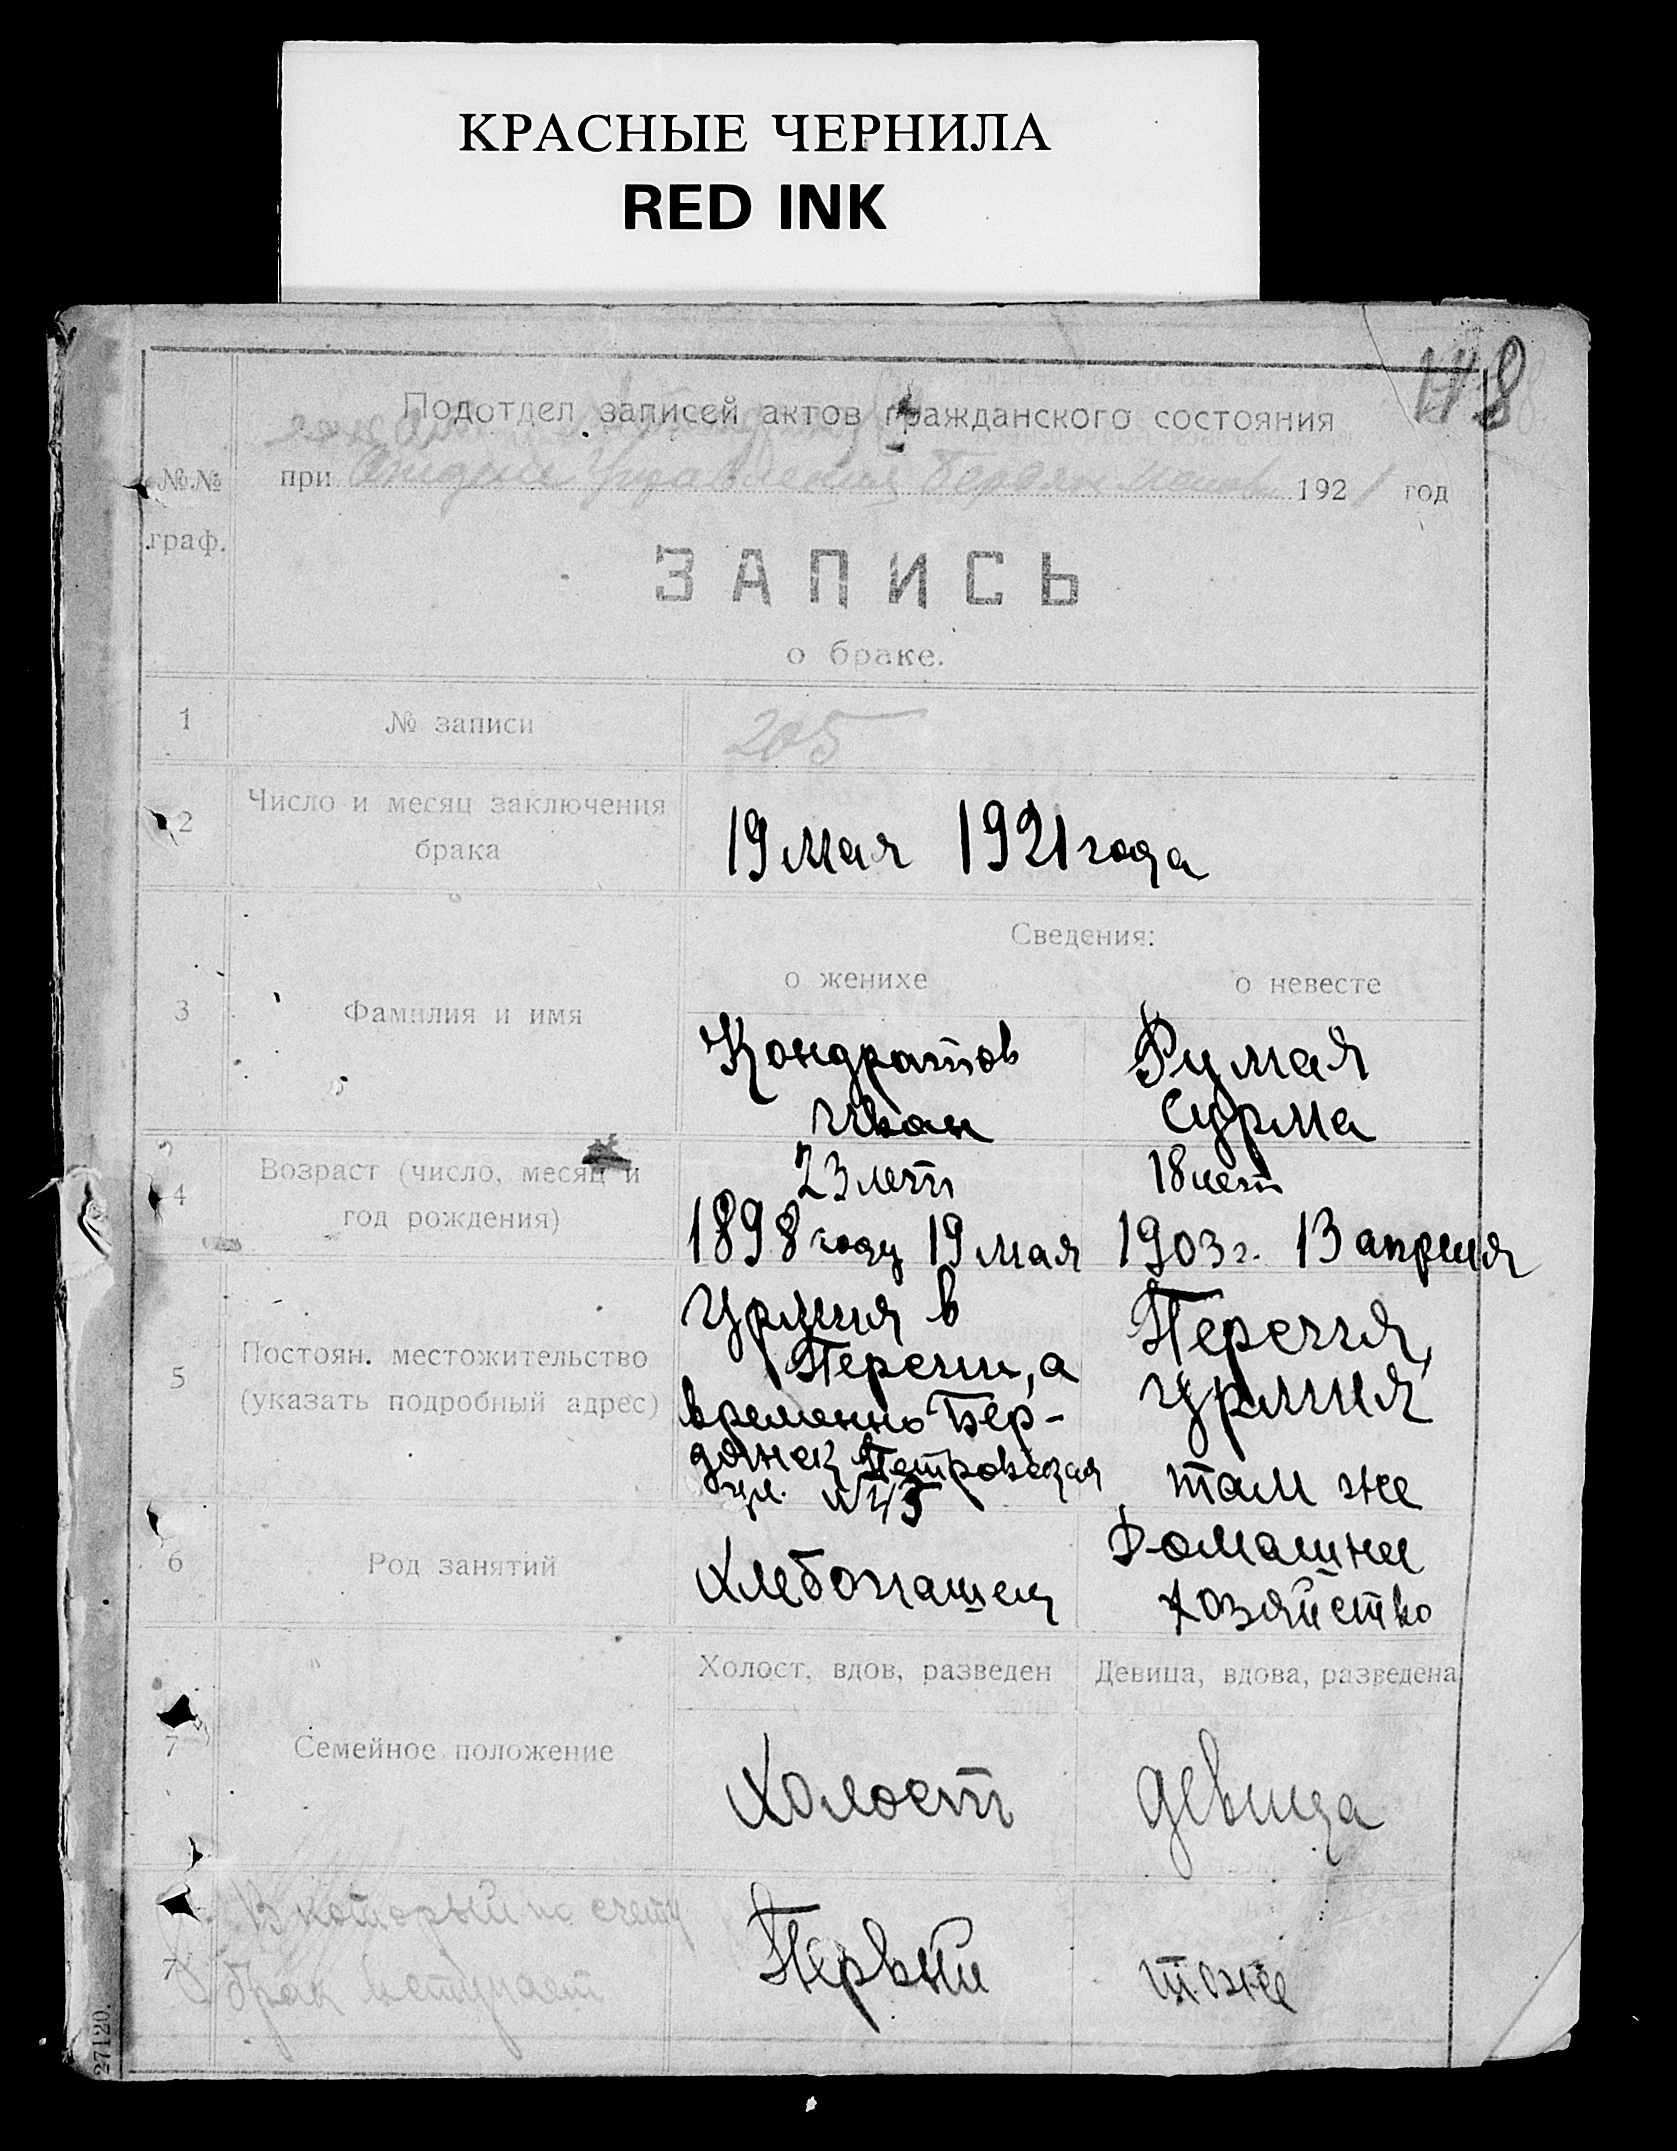 КРАСНЫЕ ЧЕРНИЛА
RED INK
118
Подотдел записей актов гражданского состояния
№№ граф.
при Отделе Управления Бердян. 1921 год
ЗАПИСЬ
о браке.
1 № записи 205
2 Число и месяц заключения
брака
19 мая 1921 года
Сведения:
о женихе о невесте
3 Фамилия и имя
Кондратов Румая
Иван Сурма
4 Возраст (число, месяц и
год рождения)
23 лет 18 лет
1898 году 19 мая 1903 г. 13 апреля
5 Постоян. местожительство
(указать подробный адрес)
Урмия в
Персии, а
временно Бер-
дянск Петровская
ул. №45
Персия,
Урмия
там же
6 Род занятий
Хлебопашец
Домашнее
хозяйство
Холост, вдов, разведен Девица, вдова, разведена
7 Семейное положение
Холост девица
7
В который по счету
брак вступает
Первый тоже
27120.